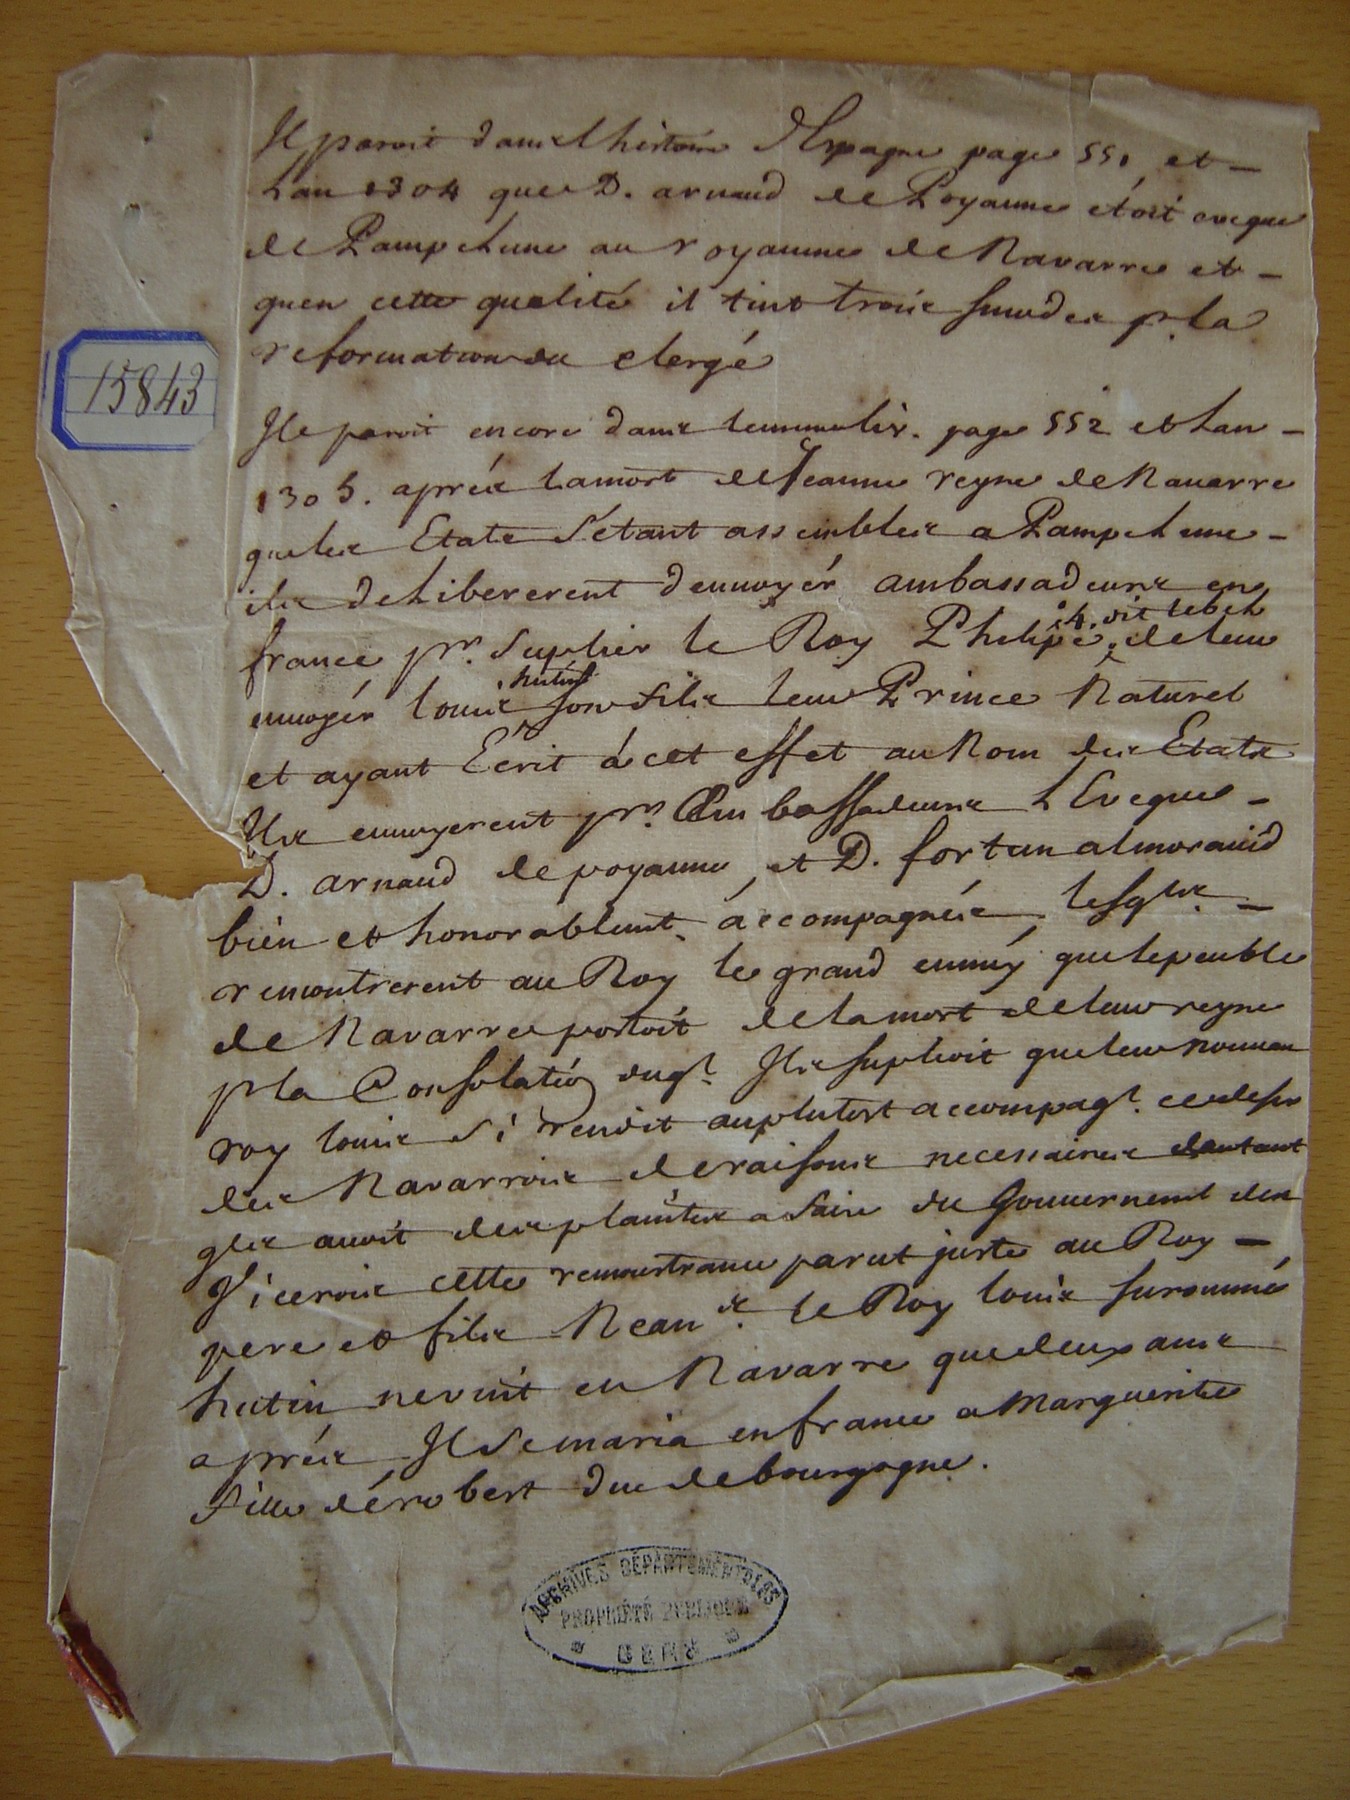 Il paroit dans lhistoire d'Espagne page 551 et -
Lan 1304 que D. arnaud de Poyanne étoit eveque
de Pampelune au royaume de Navarre et -
quen cette qualité il tint trois sinodes pr. la
reformation du clergé
15843
Il paroit encore dans le mme. liv. page 552 et Lan -
1305. aprés la mort de Jeanne reyne de Navarre
que les Etats S'etant assembles a Pampelune -
ils delibererent d'envoyér ambassadeurs en
france pr. Suplier le Roy Phelipe 4. dit lebel de leur
envoyér louis hutin son fils leur Prince Naturel
et ayant Ecrit á cet effet au Nom des Etats
Ils envoyerent pr. Ambassadeurs L'Eveque -
D. arnaud de poyanne et D. fortun almoravid
bien et honorablemt. áccompagnés, lesqls. -
remontrerent au Roy le grand ennuy que le peuble
de Navarre portoit de la mort de leur reyne
pr la Consolatió duql. Ils suplioit que leur nouveau
roy louis S'i rendit au plutost accompagt. ce desir
des Navarrois de raisons necessaires dautant
qls avoit des plaintes a faire du Gouvernemt des
Viceroix cette remonstrance parut juste au Roy -
pere et fils Nean. le Roy louis surommé
hutin ne vint en Navarre que deux ans
aprés Il Se maria en france a Marguerite
fille dé robert duc de bourgogne.
ARCHIVES DÉPARTEMENTALES
PROPRIÉTÉ PUBLIQUE
GERS